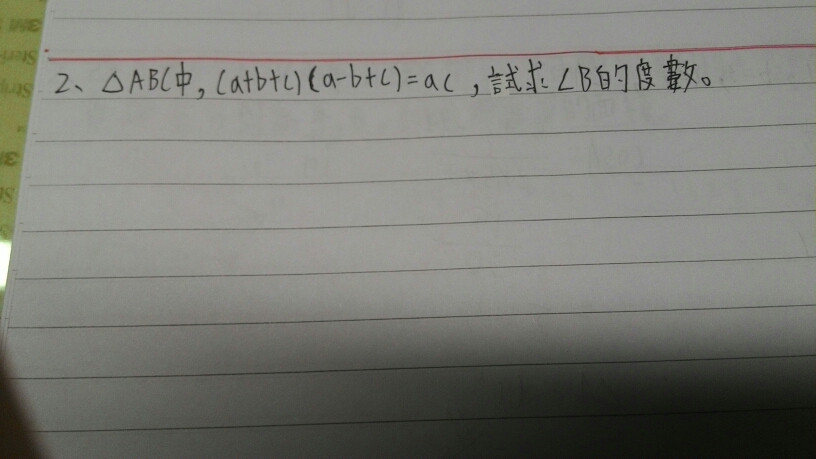 2、△ABC中,(a+b+c)(a-b+c)=ac,試求∠B的度數。